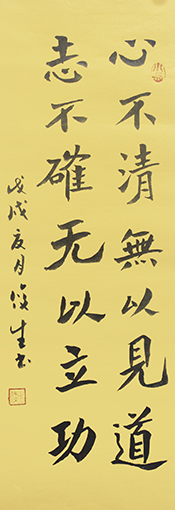 心不清無以見道
志不確无以立功
戊戌夏月俊生书